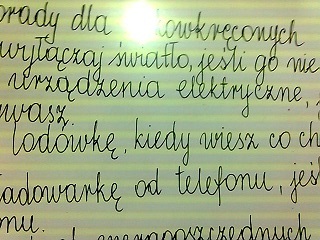 orady dla kowkręconych
wyłączaj światło, jeśli go nie
urządzenia elektryczne,
wasz.
lodówkę, kiedy wiesz co ch
adowarkę od telefonu, jeś
mu.
energooszczędnych